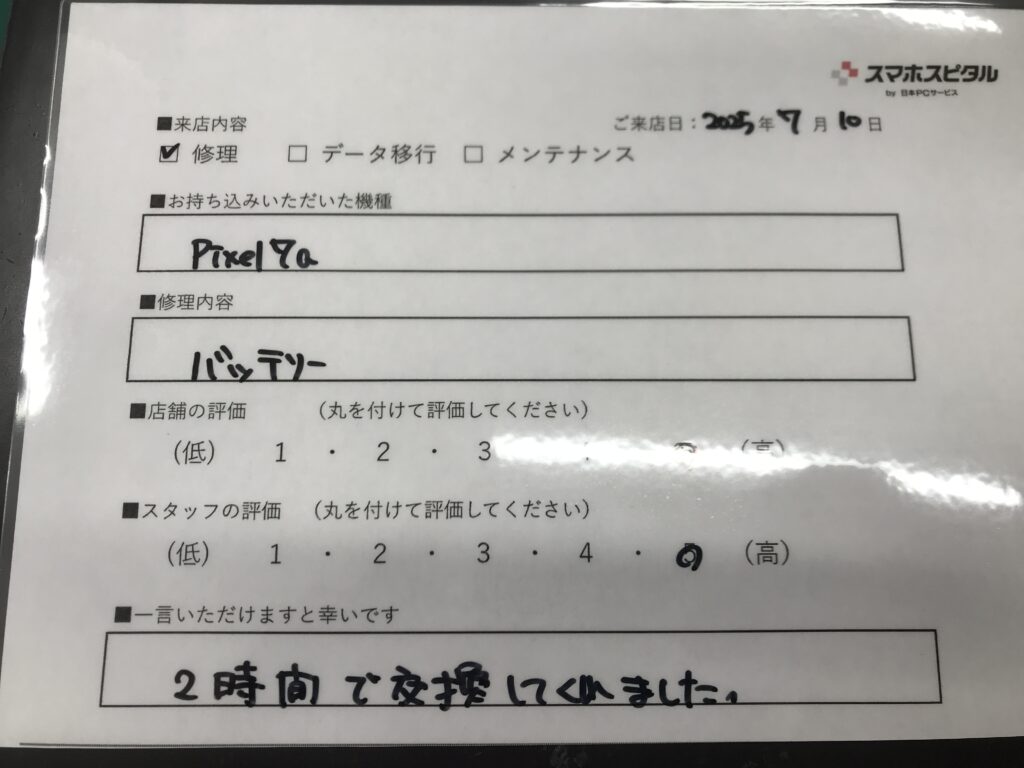 スマホスピタル
by 日本PCサービス
■来店内容
ご来店日：2025年7月10日
☑ 修理 □ データ移行 □ メンテナンス
■お持ち込みいただいた機種
Pixel 7a
■修理内容
バッテリー
■店舗の評価 （丸を付けて評価してください）
（低） 1 ・ 2 ・ 3 （高）
■スタッフの評価 （丸を付けて評価してください）
（低） 1 ・ 2 ・ 3 ・ 4 ・ （高）
■一言いただけますと幸いです
2時間で交換してくれました。